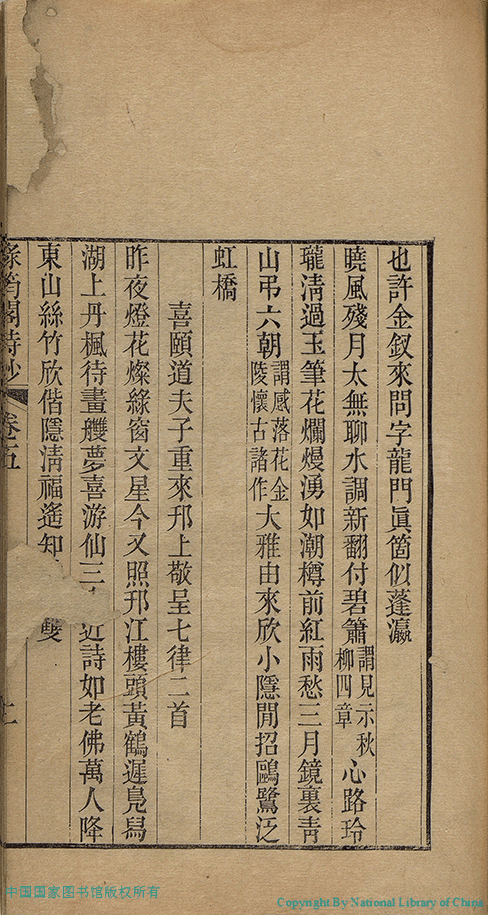 也許金釵來問字龍門眞箇似蓬瀛
曉風殘月太無聊水調新翻付碧簫謂見示秋柳四章心路玲
瓏淸過玉筆花爛熳湧如潮樽前紅雨愁三月鏡裏靑
山弔六朝謂感落花金陵懷古諸作大雅由來欣小隱閒招鷗鷺泛
虹橋
喜頤道夫子重來邗上敬呈七律二首
昨夜燈花燦綠窗文星今又照邗江樓頭黃鶴遲鳧舄
湖上丹楓待畫艭夢喜游仙三近詩如老佛萬人降
東山絲竹欣偕隱淸福遙知雙
綠筠閣詩鈔
卷五
中国国家图书馆版权所有
Copyright By National Library of China